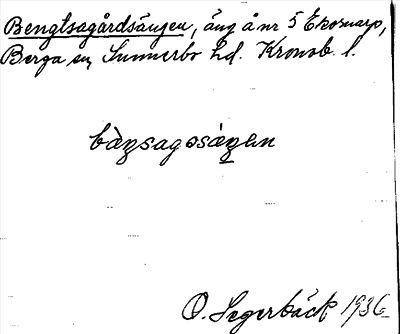 Bengtsagårdsängen, äng å nr 5 Ekornarp,
Berga sn, Sunnerbo hd. Kronob. l.
bàŋsagosáŋen
O. Segerbäck 1936